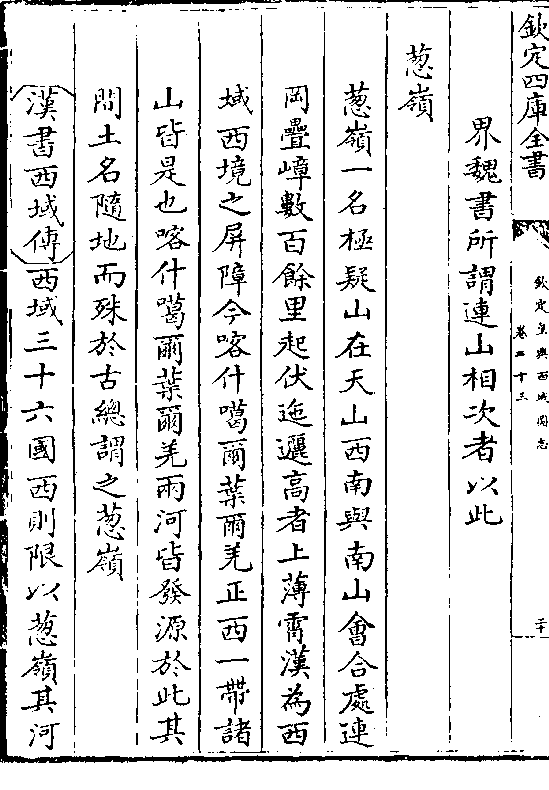 欽定四庫全書
欽定皇輿西域圖志
卷二十三
二十
界魏書所謂連山相次者以此
葱嶺
葱嶺一名極疑山在天山西南與南山會合處連
岡疊嶂數百餘里起伏迤邐高者上薄霄漢為西
域西境之屏障今喀什噶爾葉爾羌正西一帶諸
山皆是也喀什噶爾葉爾羌兩河皆發源於此其
間土名隨地而殊於古總謂之葱嶺
漢書西域傳西域三十六國西則限以葱嶺其河